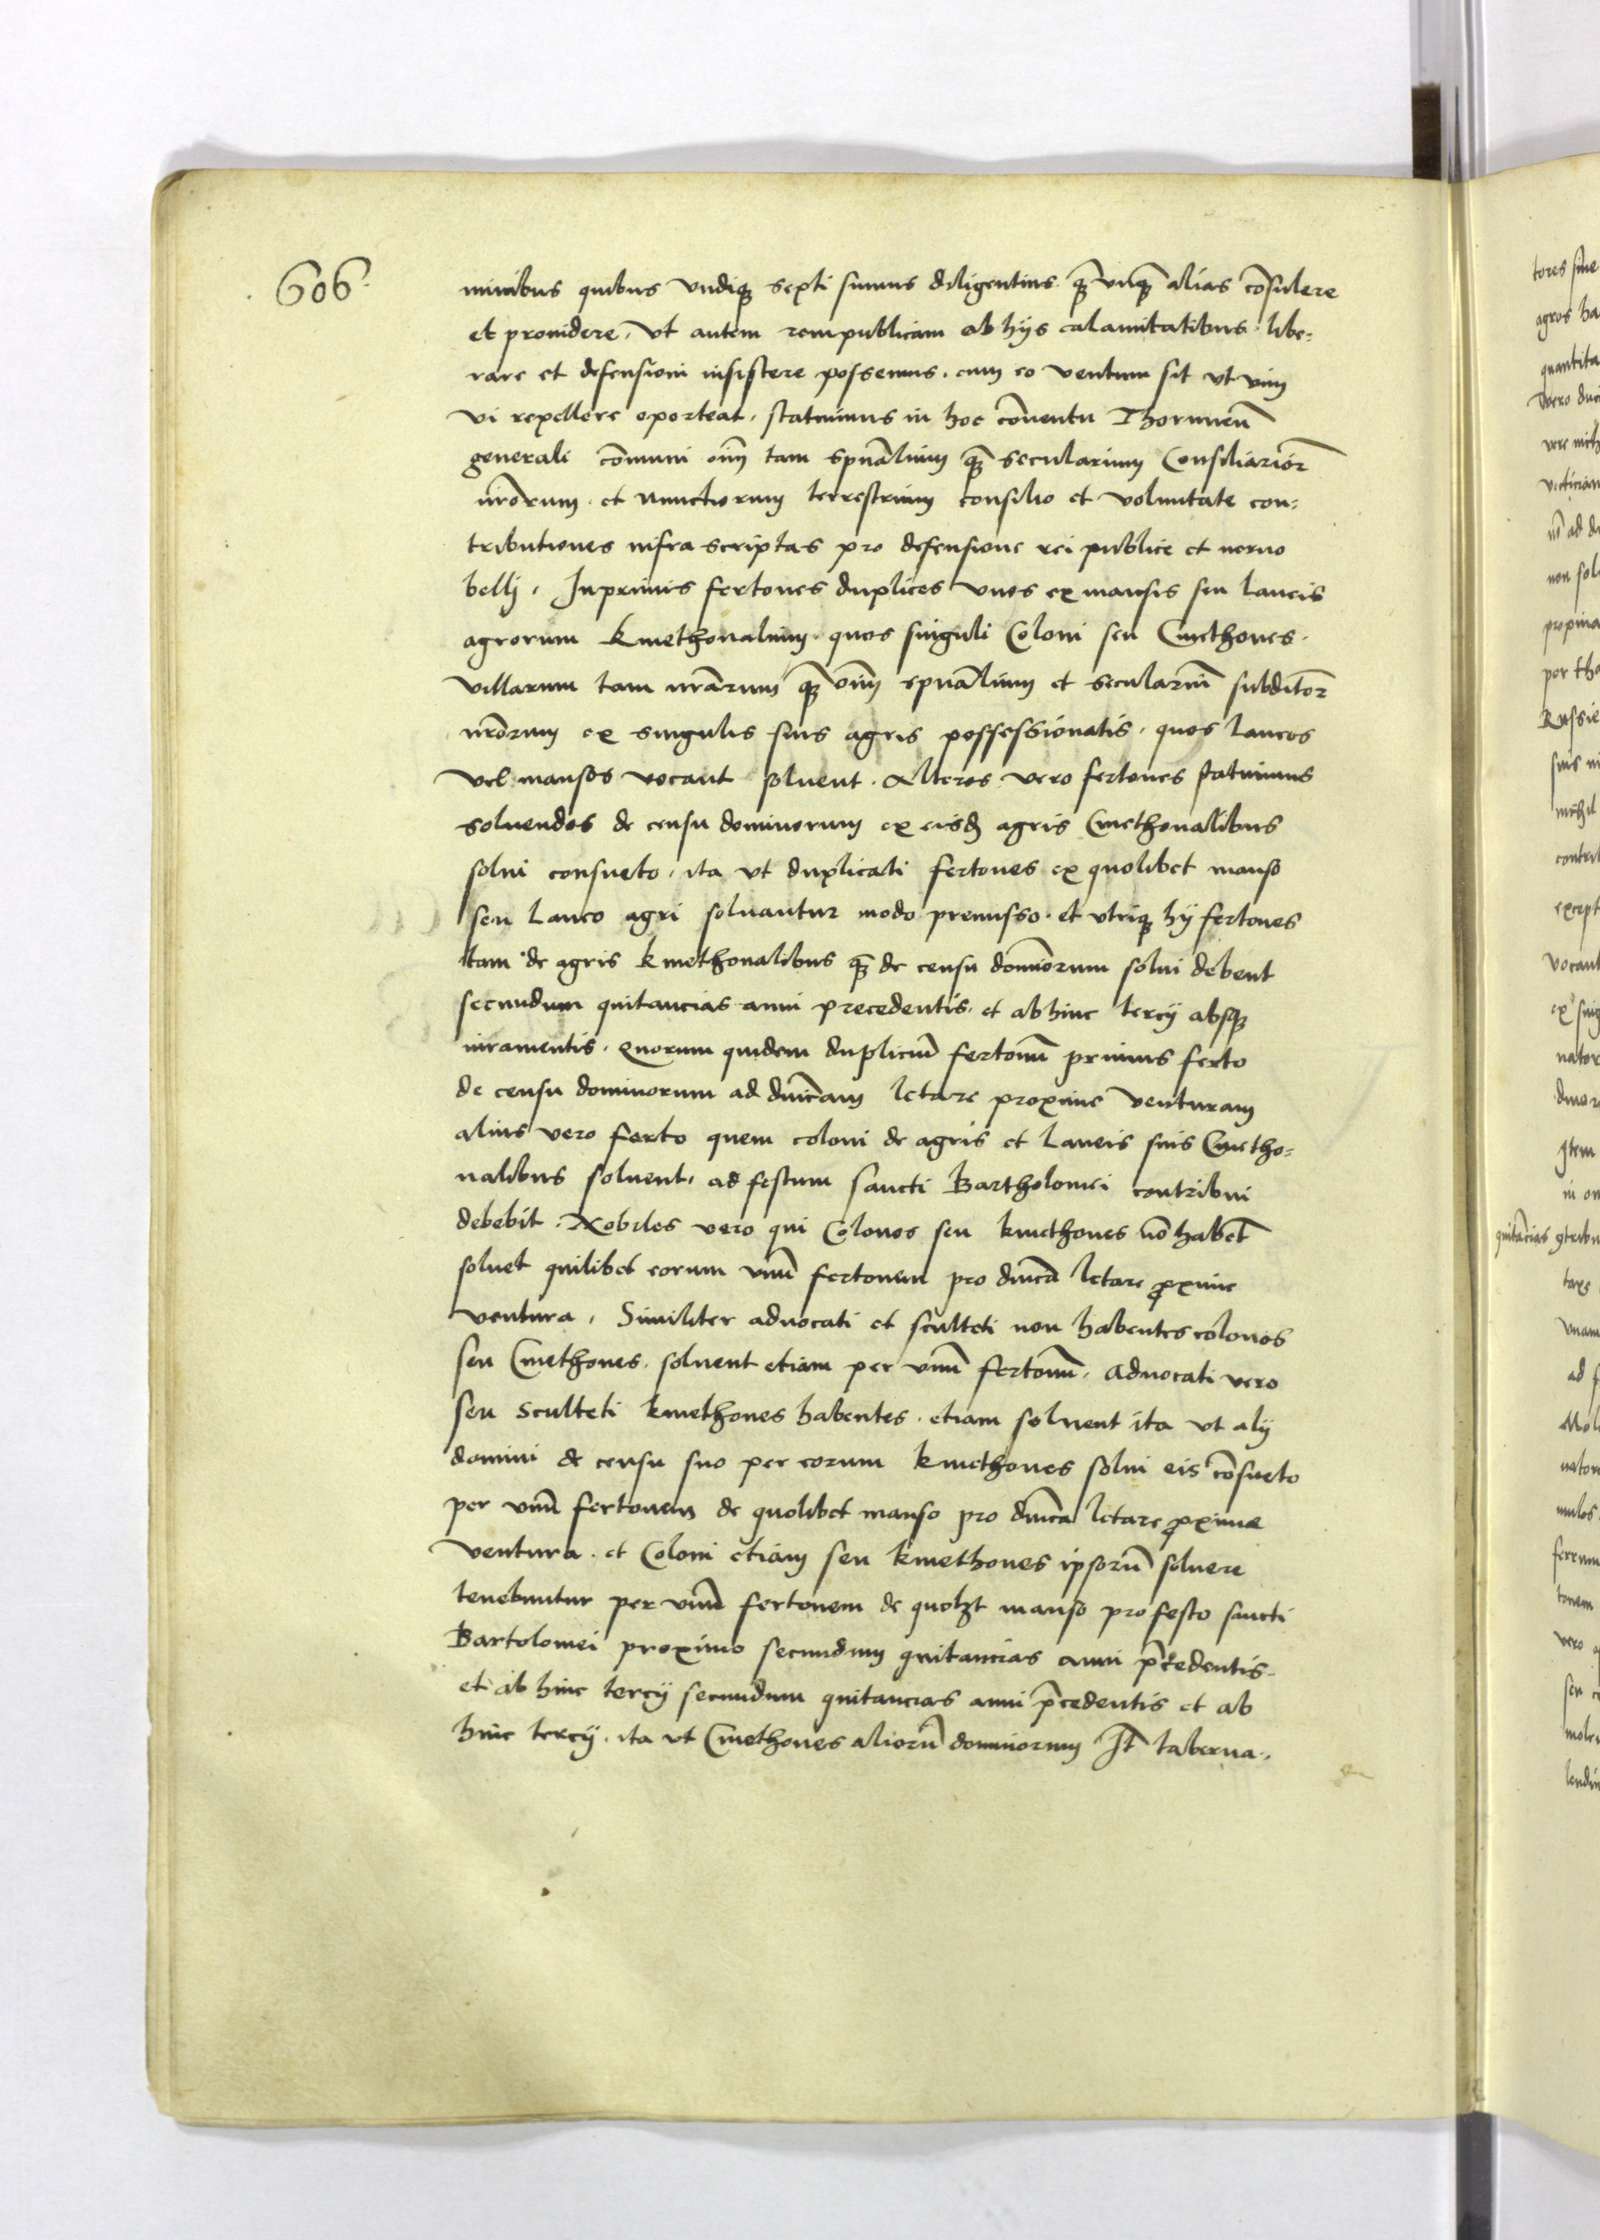 606
minibus quibus vndiqꝫ septi sumus diligentius qꝫ vnqꝫ alias cōsulere
et prouidere, vt autem rempublicam ab hijs calamitatibus libe=
rare et defensioni insistere possemus. cum eo ventum sit vt vim
vi repellere oporteat, statuimus in hoc cōuentu Thorunēn̄
generali cōmuni om̄ tam spūalium qꝫ secularium Consiliarior̄
nrōrum et Nunctiorum terrestrium consilio et voluntate con=
tributiones infra scriptas pro defensione rei publice et neruo
bellj, Inprimis fertones duplices vnos ex mansis seu laneis
agrorum kmethonalium quos singuli Coloni seu Cmethones
villarum tam nrārum qꝫ om̄ spūalium et seculariū subditor̄
nrōrum ex singulis suis agris possessionatis, quos laneos
vel mansos vocant soluent. Alteros vero fertones statuimus
soluendos de censu dominorum ex eisdꝫ agris Cmethonalibus
solui consueto, ita vt duplicati fertones ex quolibet manso
seu laneo agri soluantur modo premisso. et vtriqꝫ hij fertones
tam de agris kmethonalibus qꝫ de censu dominorum solui debent
secundum quitancias anni precedentis, et ab hinc tercij absqꝫ
iuramentis. Quorum quidem dupliciū fertonū primus ferto
de censu dominorum ad dn̄icam letare proxime venturam
alius vero ferto quem coloni de agris et laneis suis Cmetho=
nalibus soluent, ad festum sancti Bartholomei contribui
debebit. Nobiles vero qui Colonos seu kmethones nō habēt
soluet quilibet eorum vnū fertonem pro dn̄ica letare ꝓxime
ventura, Similiter aduocati et sculteti non habentes colonos
seu Cmethones, soluent etiam per vnū fertonū. Aduocati vero
seu sculteti kmethones habentes, etiam soluent ita vt alij
domini de censu suo per eorum kmethones solui eis cōsueto
per vnū fertonem de quolibet manso pro dn̄ica letare ꝓxime
ventura. et Coloni etiam seu kmethones ipsorū soluere
tenebuntur per vnū fertonem de quolꝫt manso pro festo sancti
Bartolomei proximo secundum quitancias anni p̄cedentis
et ab hinc tercij secundum quitancias anni p̄cedentis et ab
hinc tercij, ita vt Cmethones aliorū dominorum Itē taberna.